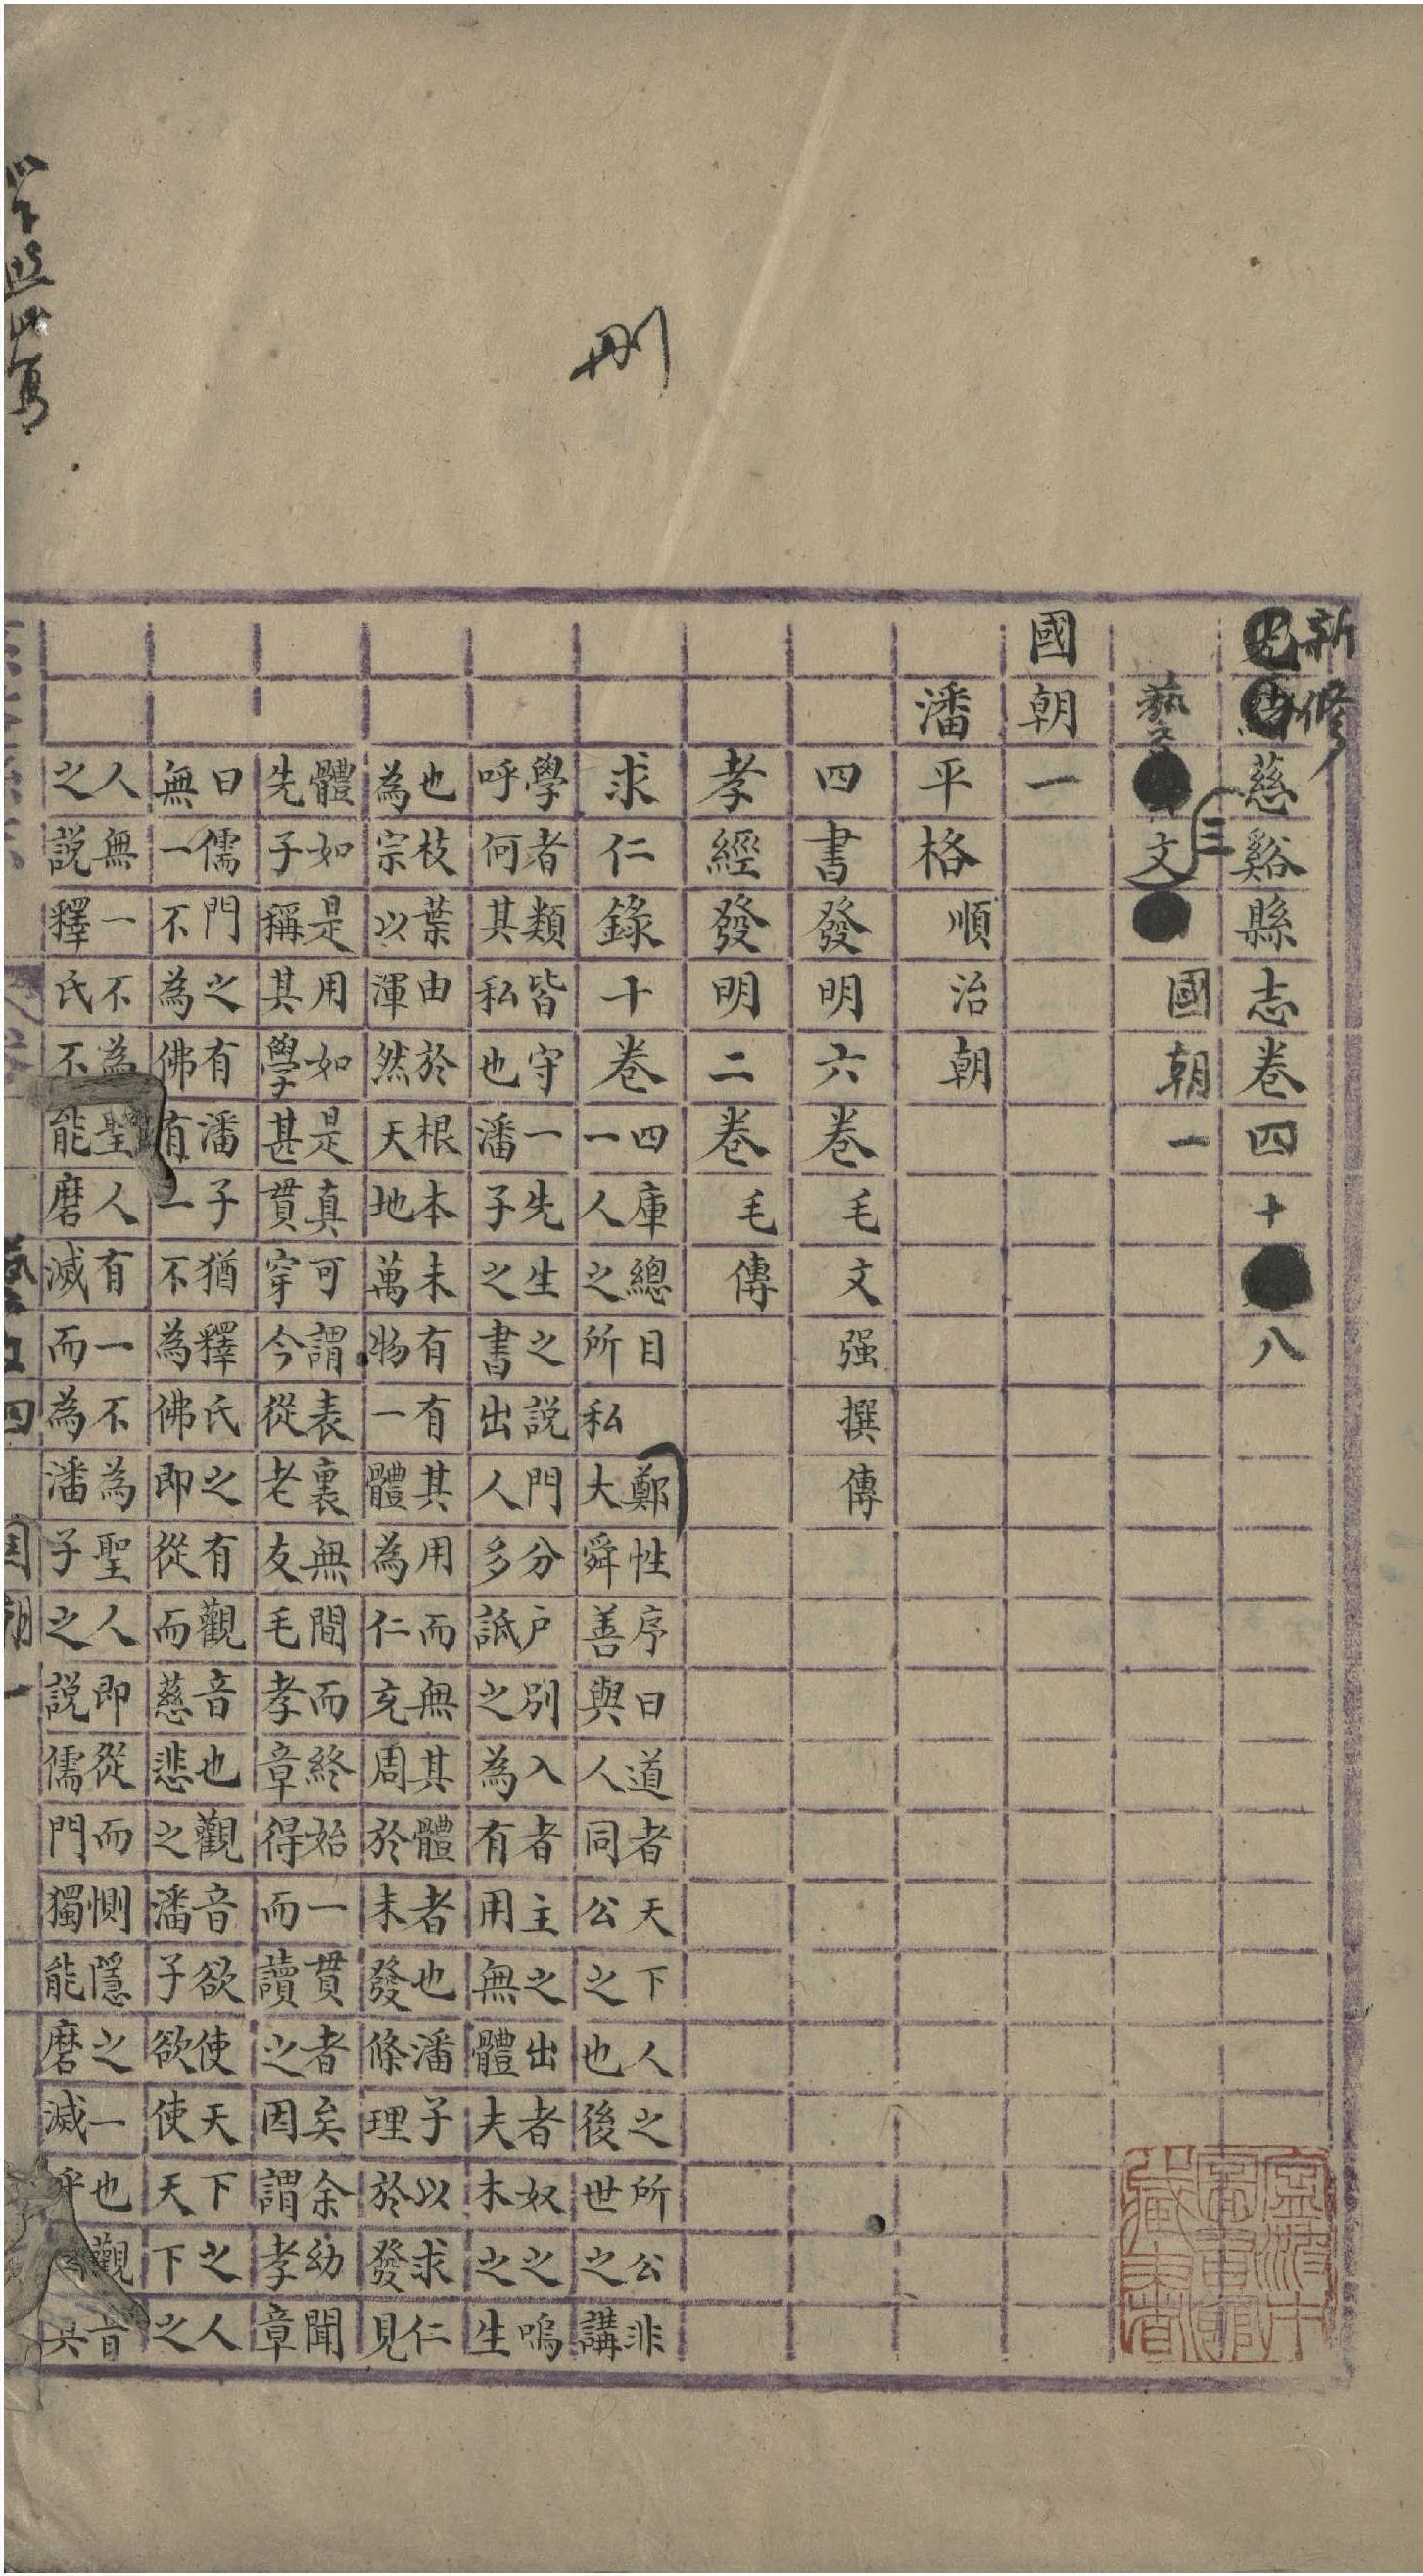 新修
慈谿縣志卷四十八
藝文三 國朝一
國朝一
潘平格順治朝
四書發明六卷毛文强撰傳
孝經發明二卷毛傳
求仁錄十卷四庫總目 鄭性序曰道者天下人之所公非
一人之所私大舜善與人同公之也後世之講
學者類皆守一先生之説門分户別入者主之出者奴之嗚
呼何其私也潘子之書出人多詆之為有用無體夫木之生
也枝葉由於根本未有有其用而無其體者也潘子以求仁
為宗以渾然天地萬物一體為仁充周於未發條理於發見
體如是用如是真可謂表裏無間而終始一貫者矣余幼聞
先子稱其學甚貫穿今從老友毛孝章得而讀之因謂孝章
曰儒門之有潘子猶釋氏之有觀音也觀音欲使天下之人
無一不為佛有一不為佛即從而慈悲之潘子欲使天下之
人無一不為聖人有一不為聖人即從而惻隱之一也觀音
之説釋氏不能磨滅而為潘子之説儒門獨能磨滅乎
刪